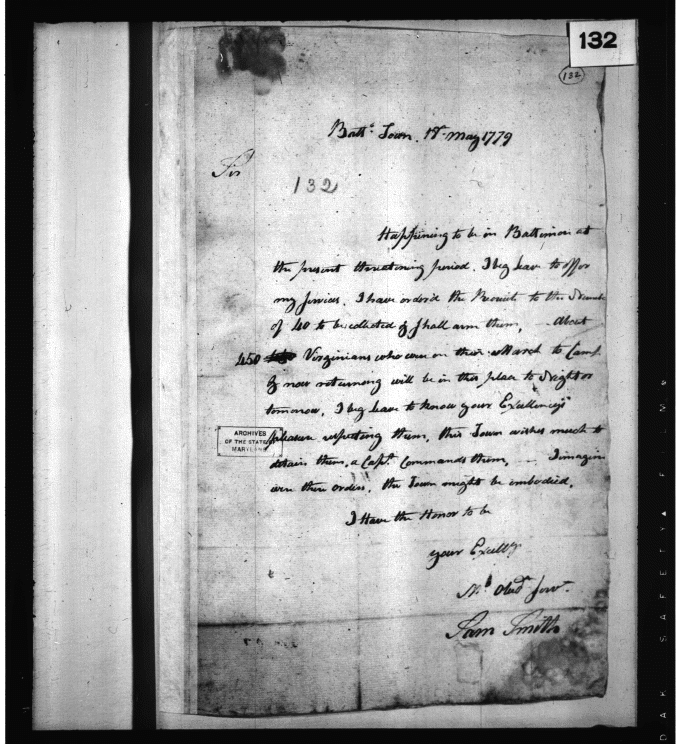 132
132
Balt.º Town. 18th May 1779
Sir
132
Happening to be in Baltimore at
the present threatening period. I beg leave to offer
my services. I have orderd the Recruits to the Number
of 40 to be collected & shall arm them, — About
450 Virginians who were on their March to Camp
& now returning will be in this place to Night or
tomorrow. I beg leave to know your Excellencys
pleasure respecting them, this Town wishes much to
detain them, a Capt. Commands them, — I imagine
were there orders, the Town might be embodied,
I Have the Honor to be
your Excelly
Mt Obedt Serv.
Sam Smith
ARCHIVES
OF THE STATE
MARYLAND
SAFETY FILM